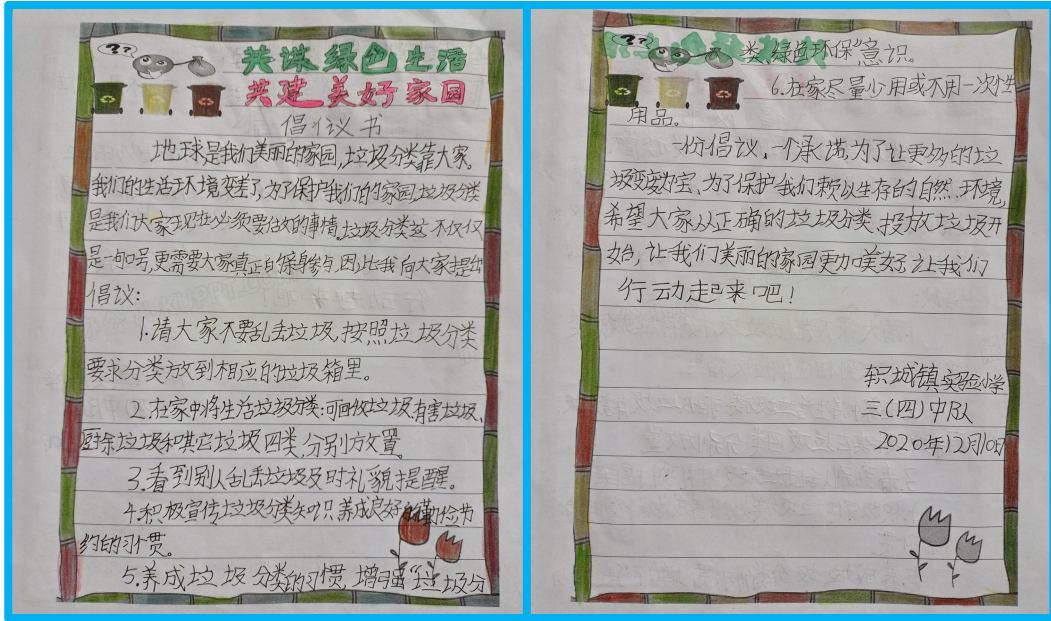 ??
共谋绿色生活
共建美好家园
倡议书
地球是我们美丽的家园,垃圾分类靠大家。
我们的生活环境变差了,为了保护我们的家园,垃圾分类
是我们大家现在必须要做好的事情。垃圾分类这不仅仅
是一句口号,更需要大家真正的保身参与,因此我向大家提出
倡议:
1.请大家不要乱丢垃圾,按照垃圾分类
要求分类放到相应的垃圾箱里。
2.在家中将生活垃圾分类:可回收垃圾、有害垃圾、
厨余垃圾和其它垃圾四类,分别放置。
3.看到别人乱丢垃圾及时礼貌提醒。
4.积极宣传垃圾分类知识,养成良好的勤俭节
约的习惯。
5.养成垃圾分类的习惯,增强“垃圾分
??
类,绿色环保”意识。
6.在家尽量少用或不用一次性
用品。
一份倡议,一个承诺,为了让更多的垃
圾变废为宝、为了保护我们赖以生存的自然环境,
希望大家从正确的垃圾分类、投放垃圾开
始,让我们美丽的家园更加美好,让我们
行动起来吧!
轵城镇实验小学
三(四)中队
2020年12月10日